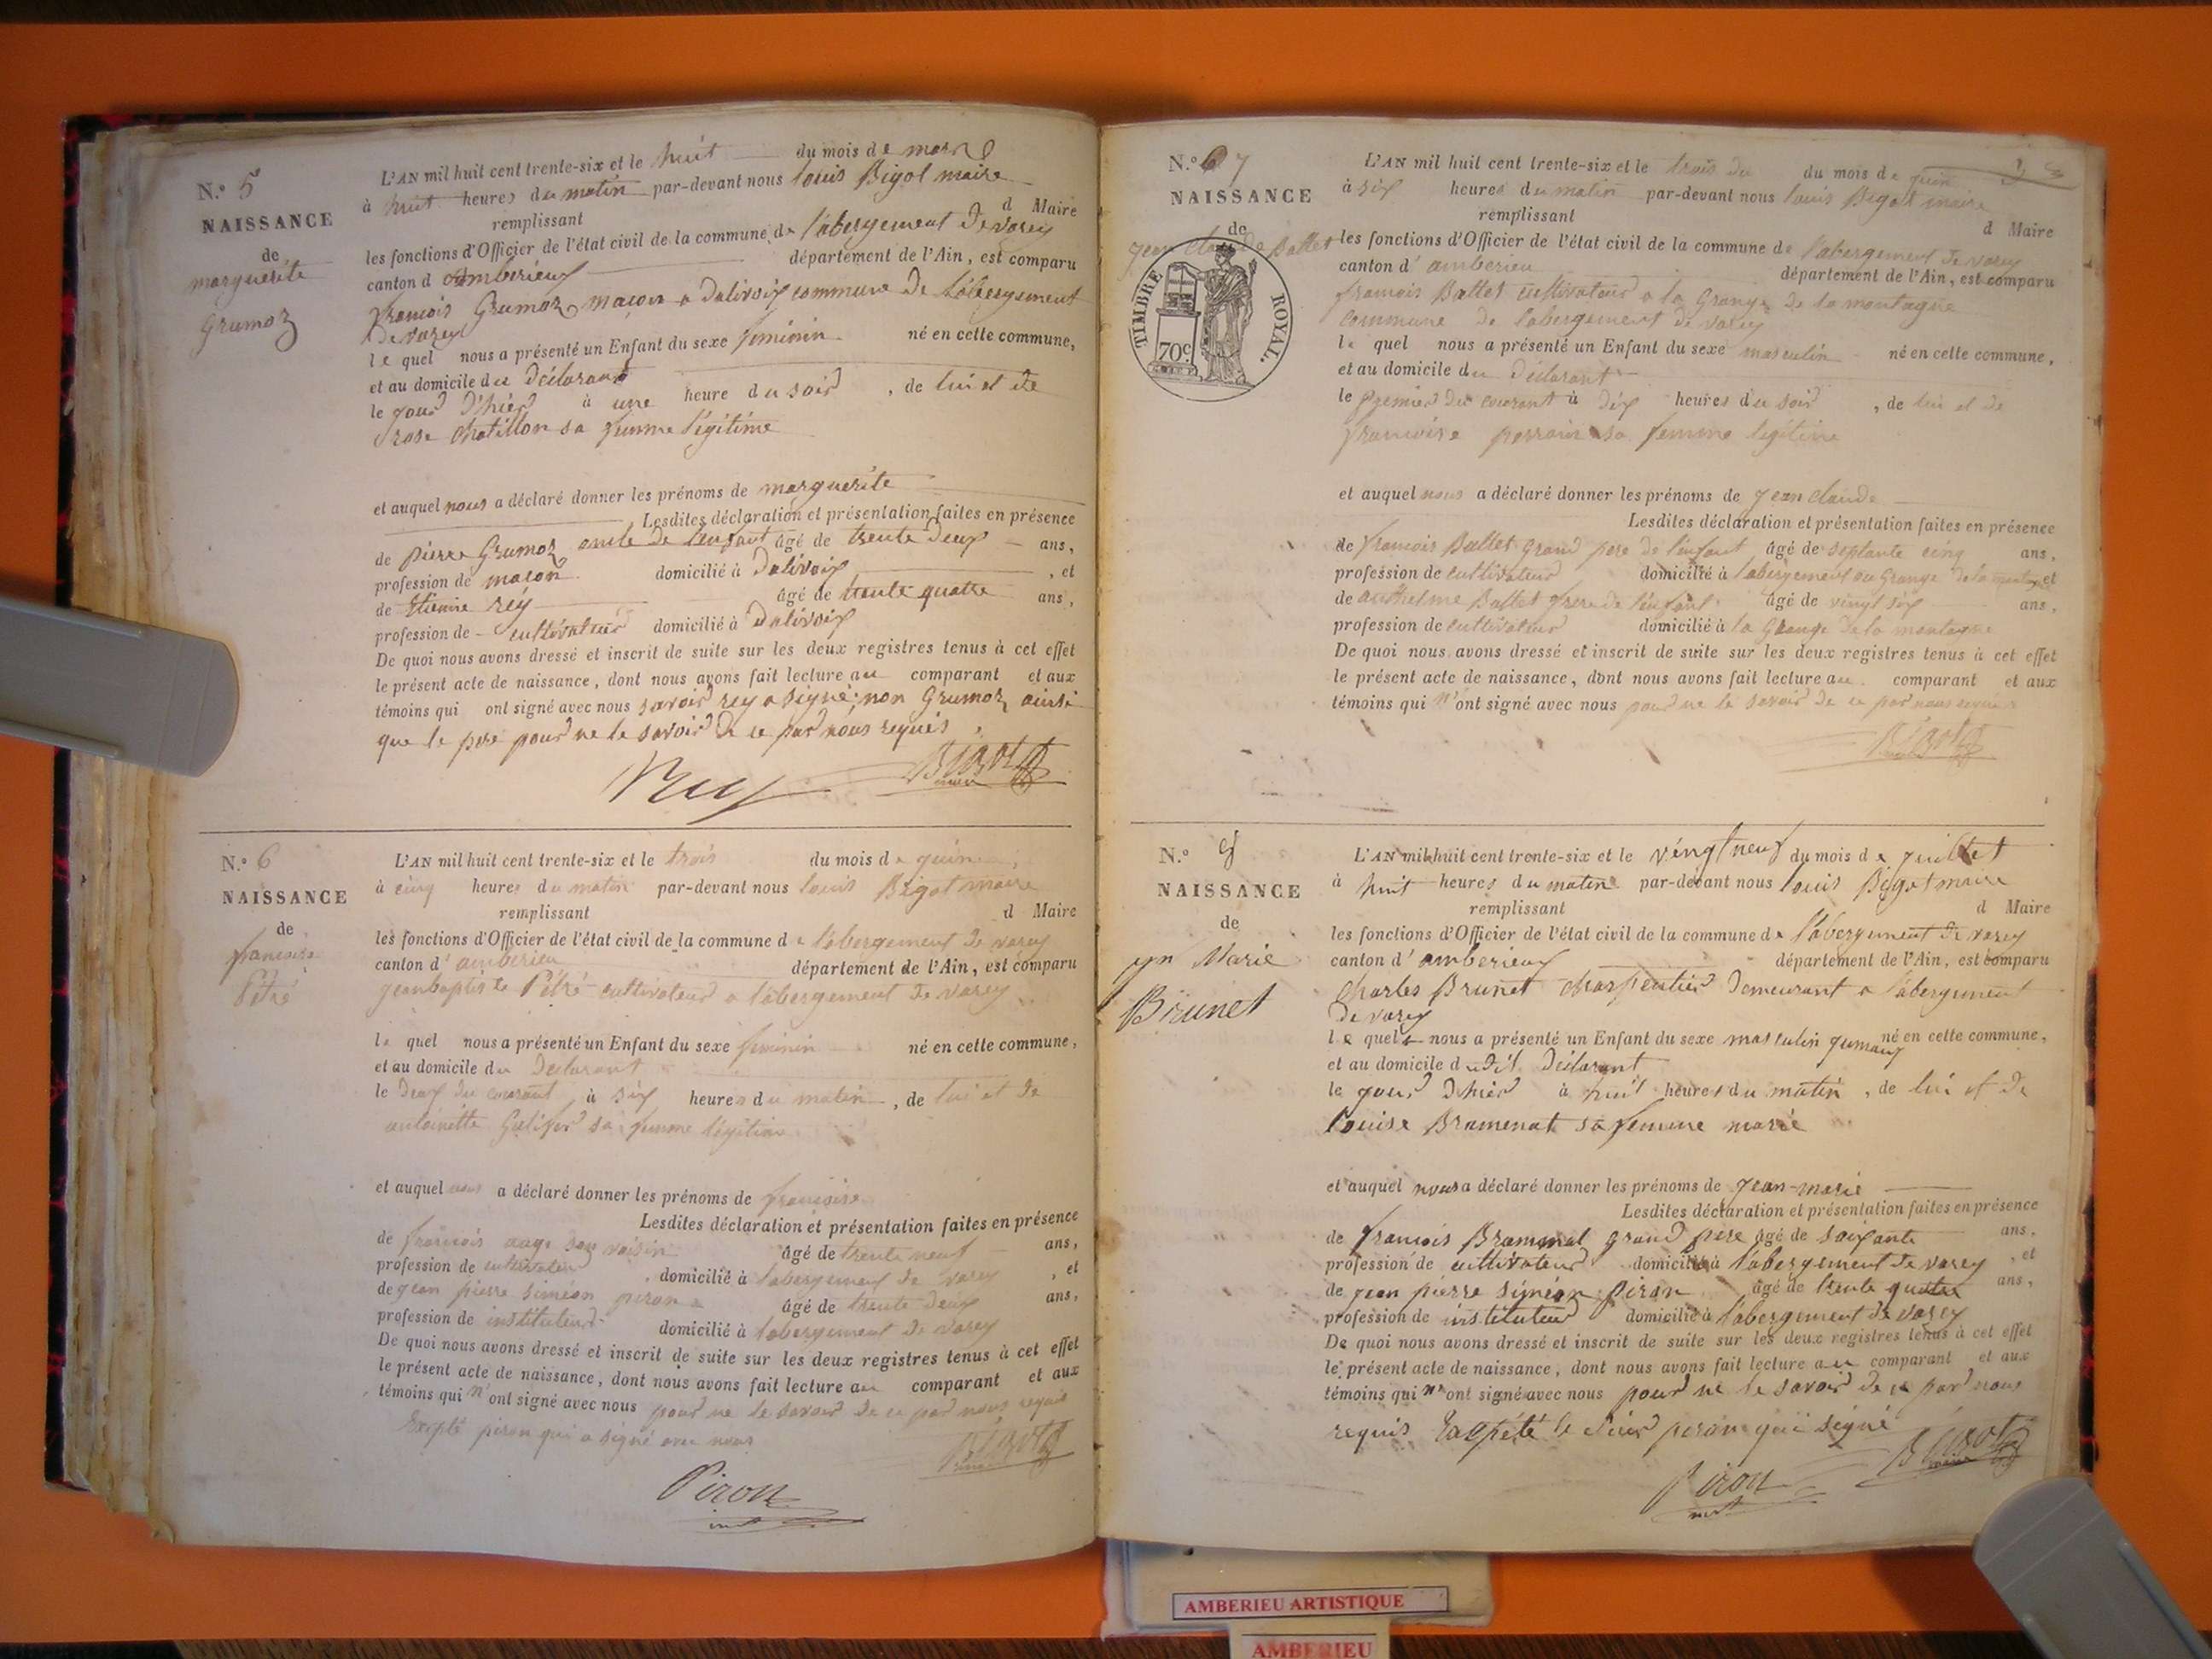 N.° 5
NAISSANCE
de
marguerite
Grumoz
L'AN mil huit cent trente-six et le huit du mois de mars
à huit heures du matin par-devant nous louis Bigot maire
remplissant d Maire
les fonctions d'Officier de l'état civil de la commune de l'abergement de varey
canton d amberieux département de l'Ain, est comparu
francois Grumoz macon a Dalivoix commune De l'abergement
De varey
le quel nous a présenté un Enfant du sexe feminin né en cette commune,
et au domicile du Déclarant
le jour D'hier à une heure du soir, de lui et de
rose chatillon sa femme légitime
et auquel nous a déclaré donner les prénoms de marguerite
Lesdites déclaration et présentation faites en présence
de pierre Grumoz oncle De l'enfant âgé de trente deux ans,
profession de macon domicilié à Dalivoix, et
de Etienne rey âgé de trente quatre ans,
profession de cultivateur domicilié à Dalivoix
De quoi nous avons dressé et inscrit de suite sur les deux registres tenus à cet effet
le présent acte de naissance, dont nous avons fait lecture au comparant et aux
témoins qui ont signé avec nous savoir rey a signé non Grumoz ainsi
que le pere pour ne le savoir De ce par nous requis
Rey Bigot
maire
N.° 6
NAISSANCE
de
francoise
Pétré
L'AN mil huit cent trente-six et le trois du mois de juin
à cinq heures du matin par-devant nous louis Bigot maire
remplissant d Maire
les fonctions d'Officier de l'état civil de la commune de l'abergement de varey
canton d' amberieu département de l'Ain, est comparu
jeanbaptiste Pétré cultivateur a l'abergement de varey
le quel nous a présenté un Enfant du sexe feminin né en cette commune,
et au domicile du Declarant
le deux du courant à six heures du matin, de lui et de
antoinette sa femme légitime
et auquel nous a déclaré donner les prénoms de francoise
Lesdites déclaration et présentation faites en présence
de francois son voisin âgé de trente neuf ans,
profession de cultivateur domicilié à l'abergement de varey, et
de jean pierre siméon piron âgé de trente deux ans,
profession de instituteur domicilié à l'abergement de varey
De quoi nous avons dressé et inscrit de suite sur les deux registres tenus à cet effet
le présent acte de naissance, dont nous avons fait lecture au comparant et aux
témoins qui n'ont signé avec nous pour ne le savoir De ce par nous requis
Excepté piron qui a signé avec nous
Bigot
Piron
inst
N.° 7
NAISSANCE
de
jean claude Ballet
TIMBRE ROYAL.
70c.
L'AN mil huit cent trente-six et le trois du du mois de juin
à six heures du matin par-devant nous louis Bigot maire
remplissant d Maire
les fonctions d'Officier de l'état civil de la commune de l'abergement de varey
canton d' amberieu département de l'Ain, est comparu
francois Ballet cultivateur a la Grange De la montagne
commune de l'abergement de varey
le quel nous a présenté un Enfant du sexe masculin né en cette commune,
et au domicile du Declarant
le premier du courant à dix heures du soir, de lui et de
francoise sa femme legitime
et auquel nous a déclaré donner les prénoms de jean claude
Lesdites déclaration et présentation faites en présence
de francois Ballet Grand pere de l'enfant âgé de septante cinq ans,
profession de cultivateur domicilié à l'abergement ou Grange de la montagne et
de anthelme Ballet frere de l'enfant âgé de vingt six ans,
profession de cultivateur domicilié à la Grange de la montagne
De quoi nous avons dressé et inscrit de suite sur les deux registres tenus à cet effet
le présent acte de naissance, dont nous avons fait lecture au comparant et aux
témoins qui n'ont signé avec nous pour ne le savoir de ce par nous requis
Bigot
N.° 8
NAISSANCE
de
Marie
Brunet
L'AN mil huit cent trente-six et le vingt neuf du mois de juillet
à huit heures du matin par-devant nous louis Bigot maire
remplissant d Maire
les fonctions d'Officier de l'état civil de la commune de l'abergement De varey
canton d' amberieux département de l'Ain, est comparu
charles Brunet charpentier Demeurant a l'abergement
De varey
le quel nous a présenté un Enfant du sexe masculin jumaux né en cette commune,
et au domicile dudit Déclarant
le jour D'hier à huit heures du matin, de lui et De
louise Bramenat sa femme marié
et auquel nous a déclaré donner les prénoms de jean-marie
Lesdites déclaration et présentation faites en présence
de francois Brammat grand pere âgé de soixante ans,
profession de cultivateur domicilié à l'abergement De varey, et
de jean pierre siméon piron âgé de trente quatre ans,
profession de instituteur domicilié à l'abergement de varey
De quoi nous avons dressé et inscrit de suite sur les deux registres tenus à cet effet
le présent acte de naissance, dont nous avons fait lecture au comparant et aux
témoins qui n'ont signé avec nous pour ne le savoir de ce par nous
requis Excpété le sieur piron qui signé
Bigot
maire
Piron
inst
AMBERIEU ARTISTIQUE
AMBERIEU